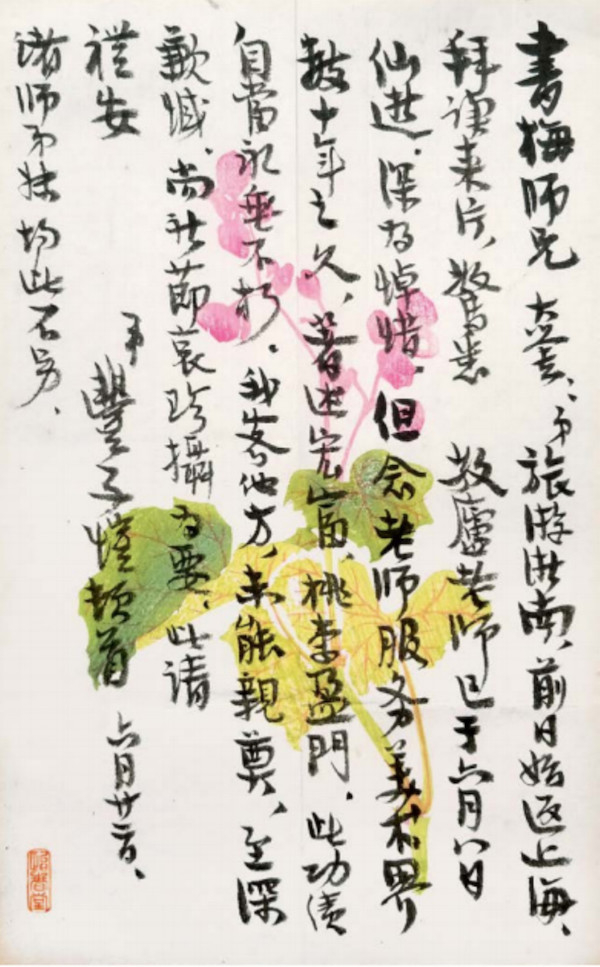 書梅师兄大鉴：弟旅游浙南，前日始返上海，
拜读来片，驚悉 敬廬老师已于六月八日
仙逝，深为悼惜。但念老师服务美术界
数十年之久，著述宏富，桃李盈門，此功绩
自當永垂不朽。我客他方，未能親奠，至深
歉憾。尚祈節哀珍攝为要，此请
禮安
弟 豐子愷頓首 六月廿二日、
诸师弟妹均此不另、